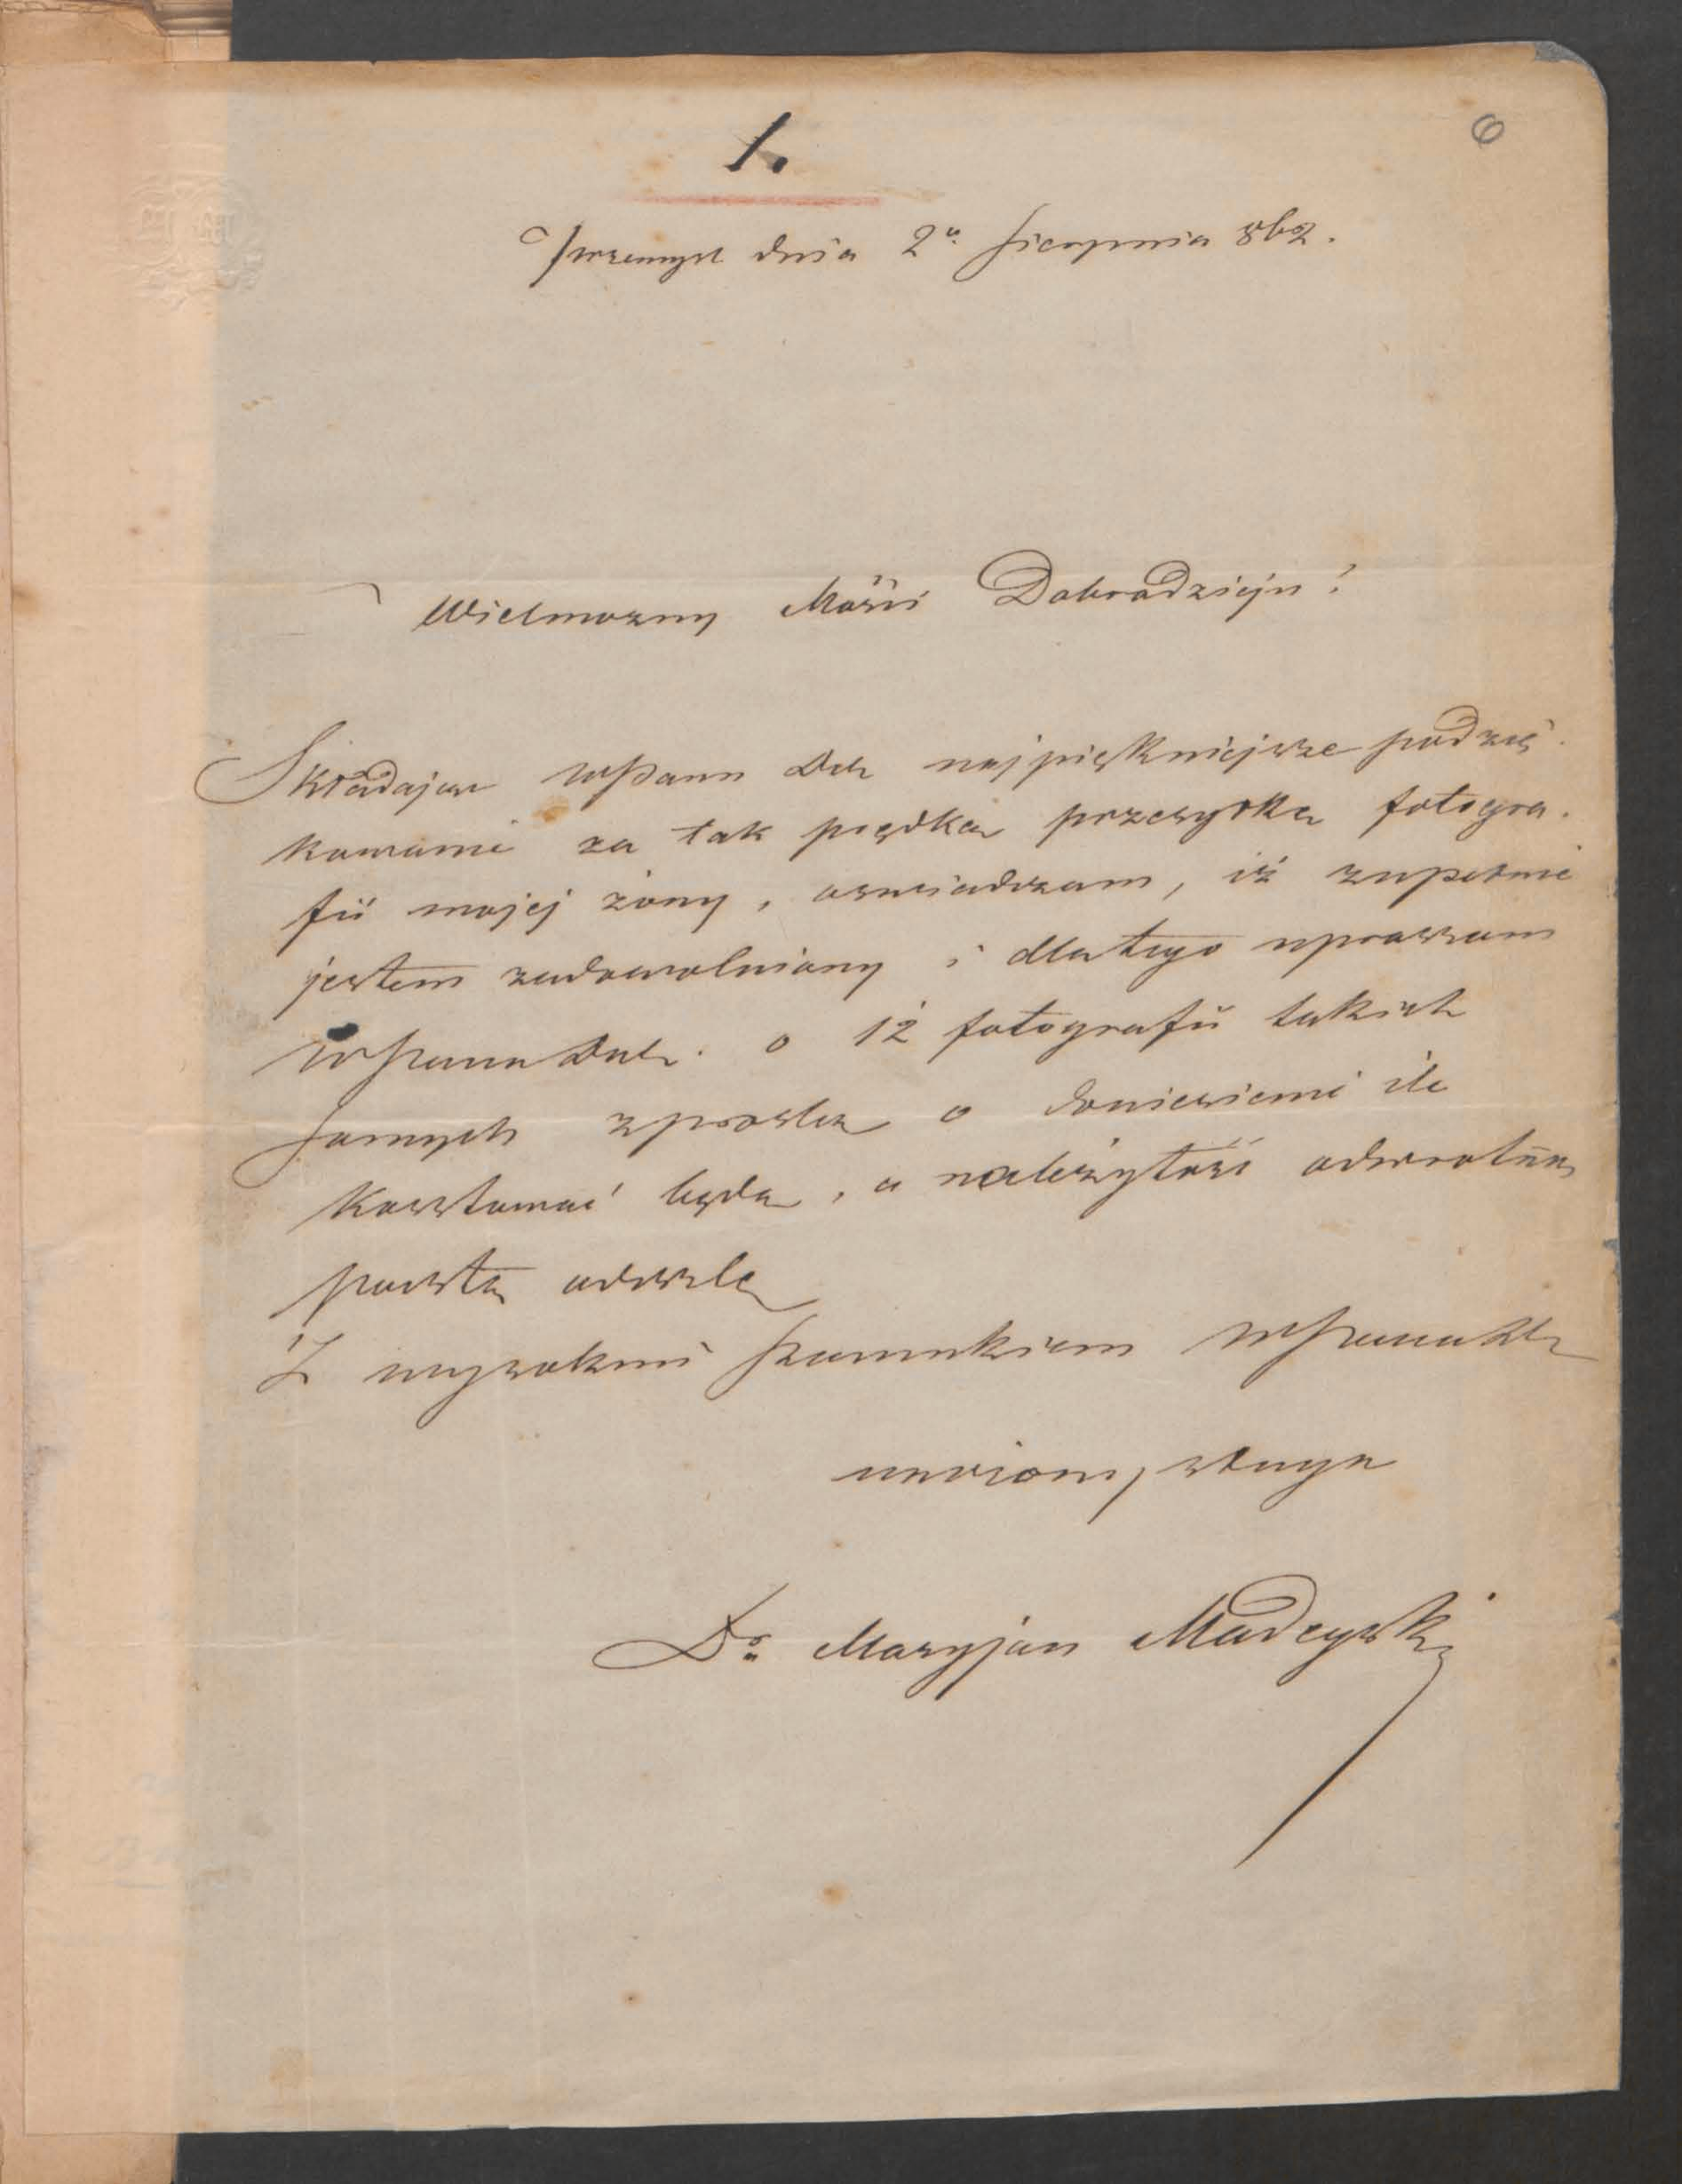 1.
6
Przemysl dnia 2º Sierpnia 862.
Wielmożny Mości Dobrodzieju!
Składając WPanu Dob najpiękniejsze podzię-
kowanie za tak prędką przesyłkę fotogra-
fii mojej żony, oswiadczam, iż zupełnie
jestem zadowolniony i dlatego upraszam
WPana Dob. o 12 fotografii takich
samych z prośbą o doniesienie ile
kosztować będą, a należytość odwrotną
pocztą odeszlę
Z wysokim szacunkiem WPana Db
uniżony sługa
Dr. Maryjan Madeyski